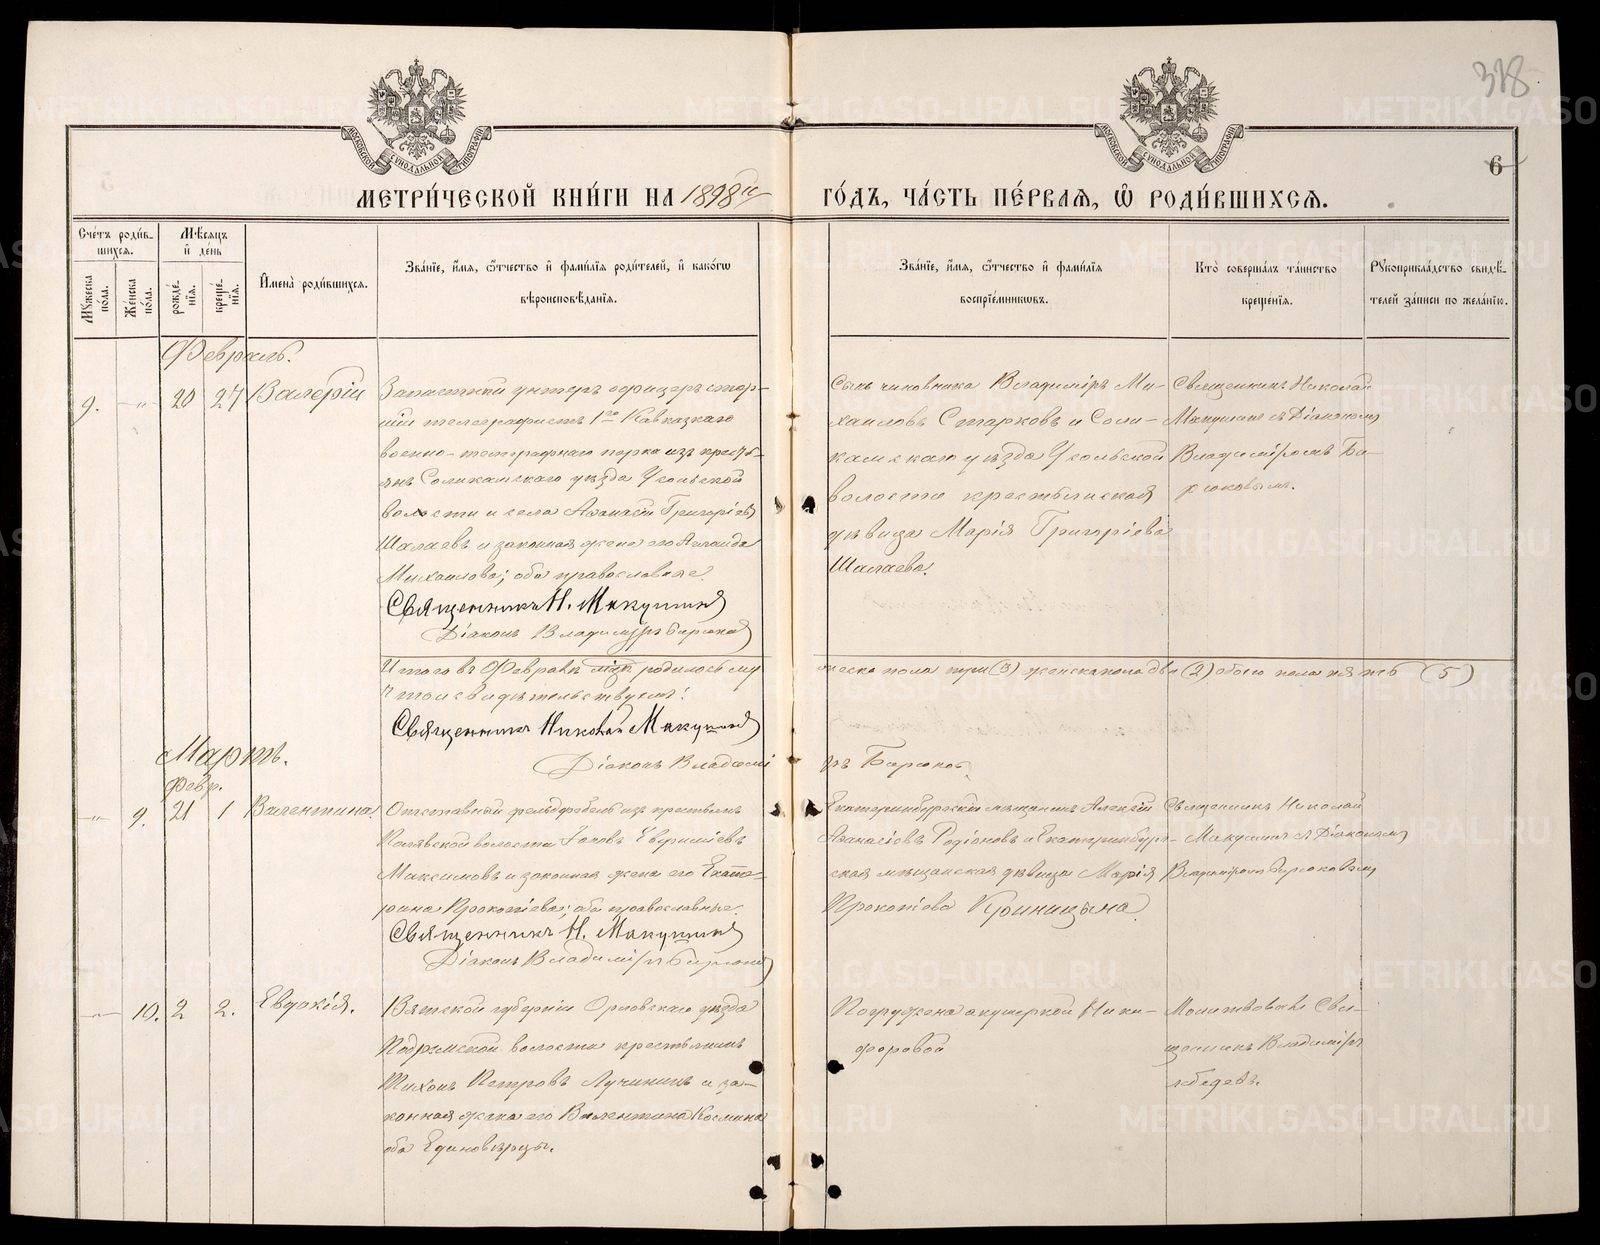 318
6
МЕТРИ́ЧЕСКОЙ КНИ́ГИ НА 1898й
ГО́ДЪ, ЧА́СТЬ ПЕ́РВАЯ, Ѡ҆ РОДИ́ВШИХСЯ.
Сче́тъ роди́вшихся.
Мѣ́сяцъ и҆ де́нь
Му́жеска по́ла.
Же́нска по́ла.
рожде́нїя.
креще́нїя.
И҆мена̀ роди́вшихся.
Зва́нїе, и҆́мя, ѻ҆́тчество и҆ фами́лїя роди́телей, и҆ како́гѡ
вѣроисповѣ́данїя.
Зва́нїе, и҆́мя, ѻ҆́тчество и҆ фами́лїя
воспрїе́мникѡвъ.
Кто̀ соверша́лъ та́инство
креще́нїя.
Рукоприкла́дство свидѣ́-
телей за́писи по жела́нїю.
Февраль.
9. -"- 20 27 Валерій
Запасный унтеръ офицеръ стар-
шій телеграфистъ 1го Кавказкаго
военно-телеграфнаго парка изъ кресть-
янъ Соликамскаго уѣзда Усольской
волости и села Аѳанасій Григоріевъ
Шалаевъ и законная жена его Аглаида
Михаилова; оба православные.
Священникъ Н. Макушинъ
Діаконъ Владиміръ Бирюковъ
Сынъ чиновника Владиміръ Ми-
хаиловъ Старковъ и Соли-
камскаго уѣзда Усольской
волости крестьянская
дѣвица Марія Григоріева
Шалаева.
Священникъ Николай
Макушинъ съ Діакономъ
Владиміромъ Би-
рюковымъ.
Итого въ Февралѣ мцѣ родилось му
жеска пола три (3) женска пола два (2) обоего пола пять (5)
Въ томъ свидѣтельствуемъ:
Священникъ Николай Макушинъ
Діаконъ Владимі
ръ Бирюковъ.
Мартъ.
Февр.
-"- 9. 21 1 Валентина.
Отставный фельдфебель изъ крестьянъ
волости Іаковъ
Максимовъ и законная жена его Екате-
рина Прокопіева; оба православные.
Священникъ Н. Макушинъ
Діаконъ Владиміръ Бирюковъ
Екатеринбургскій мѣщанинъ Алексѣй
Аѳанасіевъ Родіоновъ и Екатеринбург-
ская мѣщанская дѣвица Марія
Прокопіева Криницына.
Священникъ Николай
Макушинъ съ Діакономъ
Владиміромъ Бирюковымъ
-"- 10. 2 2. Евдокія.
Вятской губерніи Орловскаго уѣзда
волости крестьянинъ
Тихонъ Петровъ Лучининъ и за-
конная жена его Валентина Космина
оба Единовѣрцы.
Погружена акушеркой Ники-
форовой
Молитвовалъ Свя-
щенникъ Владиміръ
Лебедевъ.
METRIKI.GASO-URAL.RU